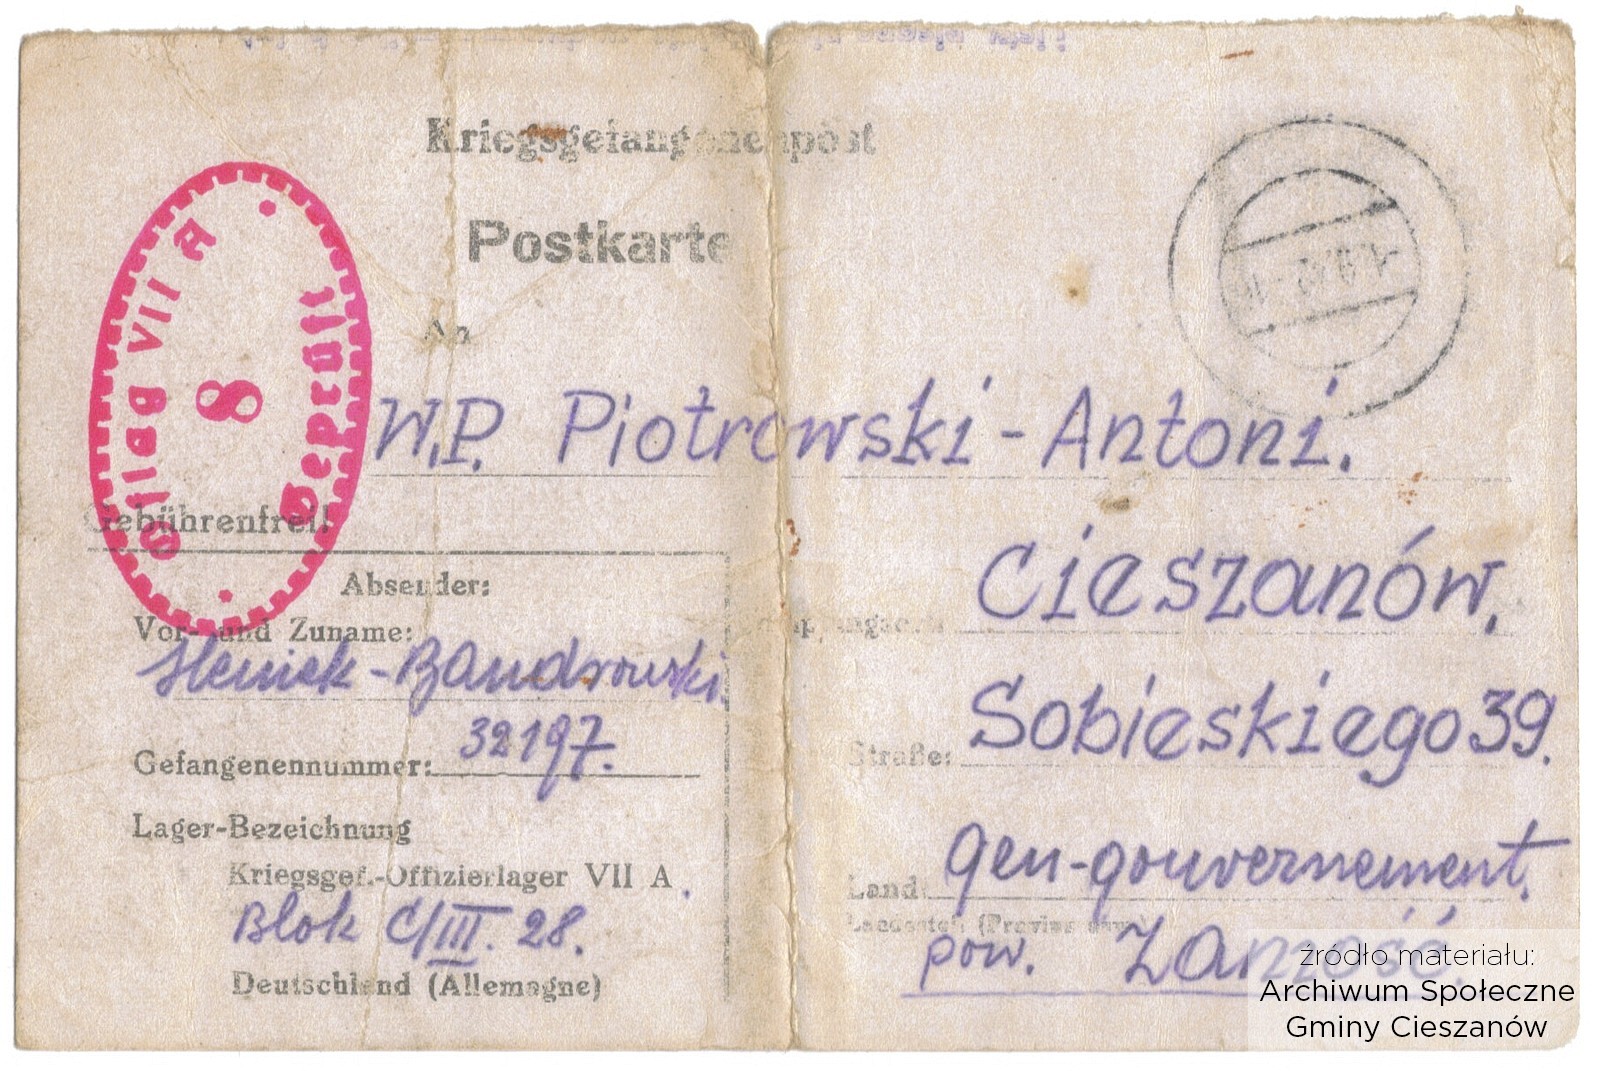 Kriegsgefangenenpost
Postkarte
An
Oflag VII A
8
Geprüft
W.P. Piotrowski - Antoni.
Gebührenfrei!
Cieszanów,
Absender:
Vor- und Zuname:
Heniek - Bandrowski
Sobieskiego 39.
Straße:
32197.
Gefangenennummer:
Lager-Bezeichnung
Kriegsgef.-Offizierlager VII A
gen-gouvernement.
Land:
Blok C/III. 28.
pow. Zamość.
Deutschland (Allemagne)
źródło materiału:
Archiwum Społeczne
Gminy Cieszanów